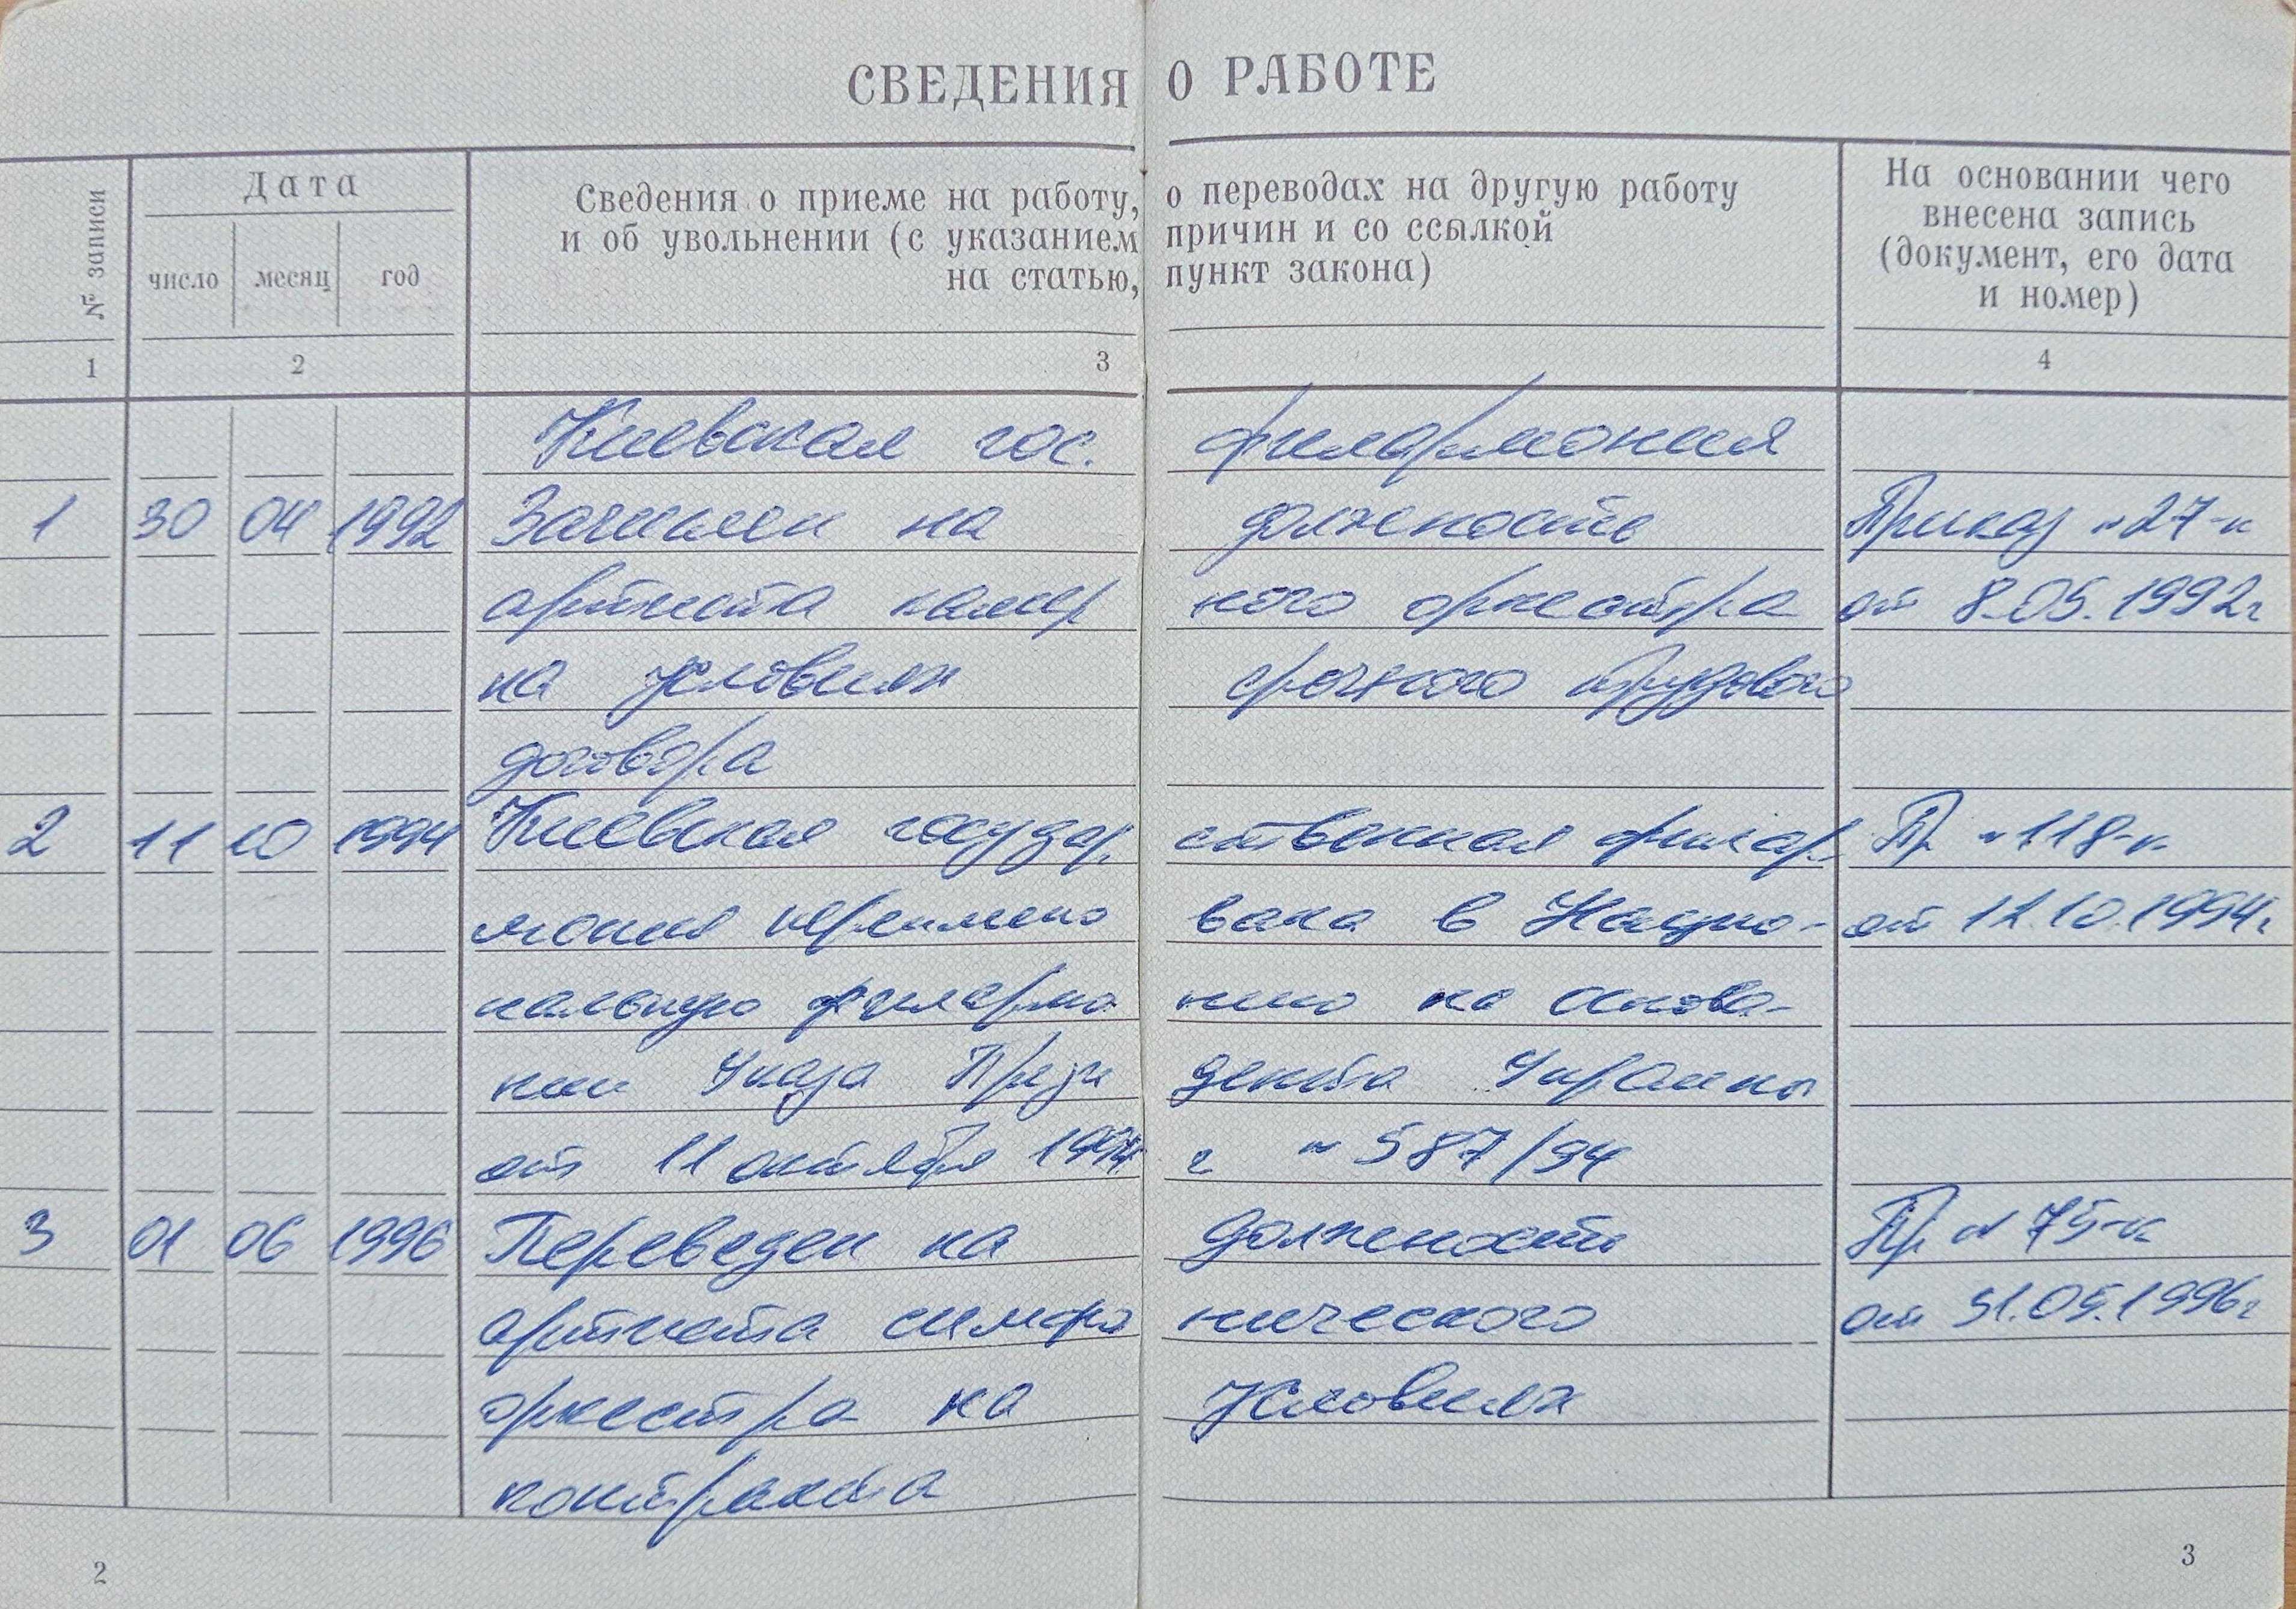 СВЕДЕНИЯ О РАБОТЕ
№ записи
Дата
число месяц год
Сведения о приеме на работу, о переводах на другую работу
и об увольнении (с указанием причин и со ссылкой
на статью, пункт закона)
На основании чего
внесена запись
(документ, его дата
и номер)
1 2 3 4
Киевская гос. филармония
1 30 04 1992 Зачислен на должность Приказ №27-к
артиста камер ного оркестра от 8.05.1992г
на условиях срочного трудового
договора
2 11 10 1994 Киевская государ ственная филар- Пр №118-к
мония переимено вана в Нацио- от 12.10.1994г
нальную филармо нию на основа-
нии Указа Прези дента Украины
от 11 октября 1994 г №587/94
3 01 06 1996 Переведен на должность Пр №75-к
артиста симфо нического от 31.05.1996г
оркестра на условиях
контракта
2 3